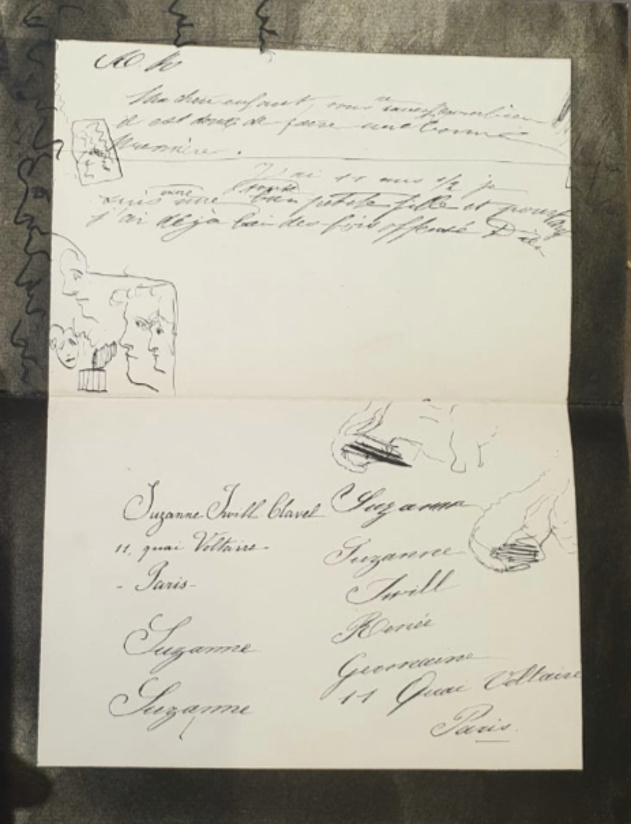 Ma chère enfant, vous savez combien
il est doux de faire une bonne
Première.
J'ai 11 ans 1/2 je
une
suis une bien petite fille et pourtant
j'ai déjà bien des fois offensé Dieu
Suzanne Twill-Clavel
11, quai Voltaire
- Paris -
Suzanne
Suzanne
Suzanne
Suzanne
Twill
Renée
Germaine
11 Quai Voltaire
Paris.